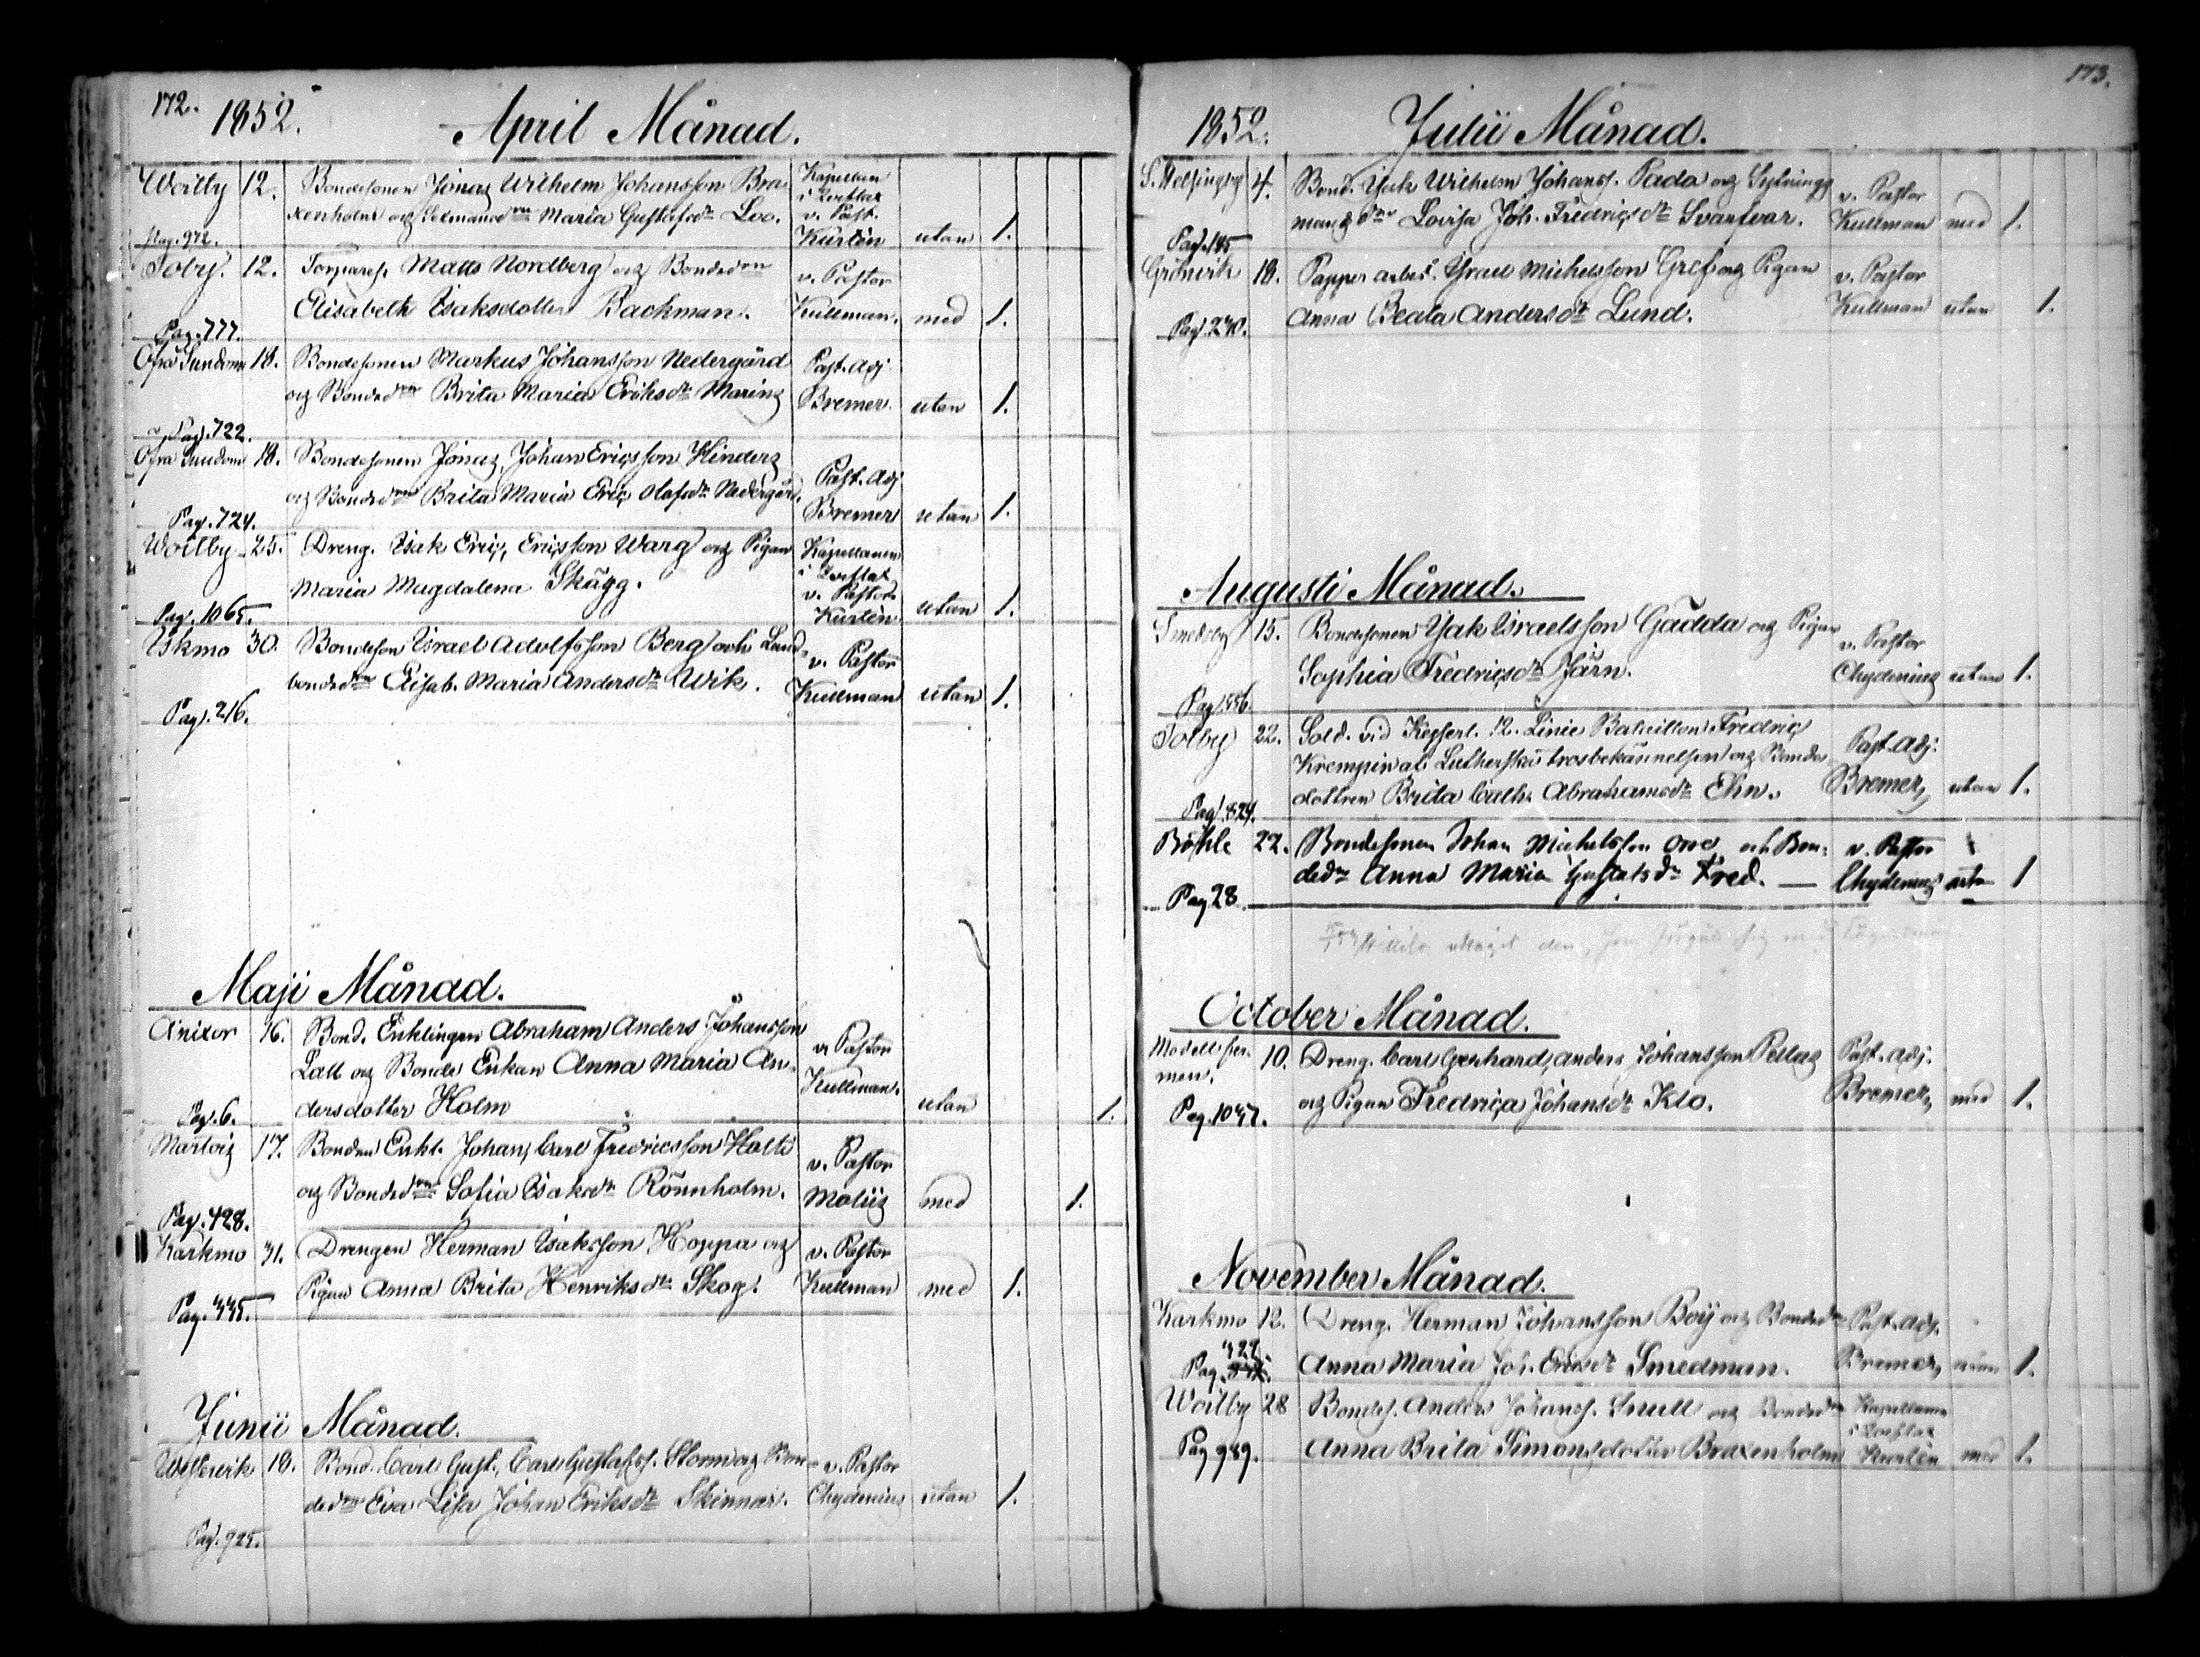 172.
1852.
April Månad.
Woitby 12. Bondesonen Jonas Wilhelm Johansson Bra- Kapellan
xenholm och Maria Gustafsdr Loo. v. Past.
Pag. 972. Kurtén utan 1.
Toby. 12. Torpares. Matts Nordberg och Bondedrn v. Pastor
Elisabeth Isaksdotter Backman. Kullman. med 1.
Pag. 777.
Öfra Sundom 18. Bondesonen Markus Johansson Nedergård Past. Adj
och Bondedrn Brita Maria Eriksdr Marins Bremer. utan 1.
Pag. 722.
Öfra Sundom 18. Bondesonen Jonas, Johan Ericsson Hinders Past. Adj
och Bondedrn Brita Maria Eric Olofsdr Nedergård. Bremer utan 1.
Pag. 724.
Woitby 25. Dreng. Isak Eric, Ericsson Warg och Pigan Kapellanen
Maria Magdalena Skägg. v. Pastor
Pag. 1065. Kurtén utan 1.
Iskmo 30. Bondeson Israel Adolfsson Berg och Land- v. Pastor
bondedrn Elisab. Maria Andersdr Wik. Kullman utan 1.
Pag. 216.
Maji Månad.
Anixor 16. Bond. Enklingen Abraham Anders Johansson v. Pastor
Lall och Bonde Enkan Anna Maria An- Kullman.
dersdotter Holm utan 1.
Pag. 6.
Martois 17. Bonden Enkl. Johan, Carl Fredricsson Holti v. Pastor
och Bondedrn Sofia Isaksdr Rönnholm. Moliis med 1.
Pag. 428.
Karkmo 31. Drengen Herman Isaksson Hoppa och v. Pastor
Pigan Anna Brita Henriksdr Skog. Kullman med 1.
Pag. 335.
Junii Månad.
Westervik 18. Bond. Carl Gust., Carl Gustafss. Storm och Bon- v. Pastor
dedrn Eva Lisa Johan Eriksdr Skinnar. Chydenius utan 1.
Pag. 925.
173.
1852.
Julii Månad.
S. Helsingby 4. Bond. Isak Wilhelm Johanss. Pada och v. Pastor
mans drn Lovisa Joh. Fredricsdr Svarfvar. Kullman med 1.
Pag. 185
Grönvik 18. Papper arbet. Israel Michelsson Gref och Pigan v. Pastor
Anna Beata Andersdr Lund. Kullman utan 1.
Pag. 240.
Augusti Månad.
Smedsby 15. Bondesonen Isak Israelsson Gädda och Pigan v. Pastor
Sophia Fredricsdr Järn. Chydenius utan 1.
Pag. 556.
Tölby 22. Sold. vid Kejserl. 12. Linie Bataillon Fredric Past. Adj.
Krempin af Lutherska trosbekännelsen och Bonde Bremer,
dottren Brita Cath. Abrahamsdr Ehn. utan 1.
Pag. 824.
Böhle 22. Bondesonen Johan Michelsson Orre och Bon- v. Pastor
dedr Anna Maria Gustafsdr Fred. — Chydenius utan 1
Pag 28
October Månad.
10. Dreng. Carl Gerhard, Anders Johansson Pellas Past. Adj.
och Pigan Fredrica Johansdr Klo. Bremer, med 1.
Pag. 1047.
November Månad.
Karkmo 12. Dreng. Herman Johansson Boij och Bondedrn Past. Adj.
Pag. 329. Anna Maria Joh. Ericsdr Smedman. Bremer, utan 1.
Woitby 28 Bondes. Anders Johanss. Snull och Bondedrn Kapellanen
Pag 989. Anna Brita Simonsdotter Braxenholm Kurtén med 1.